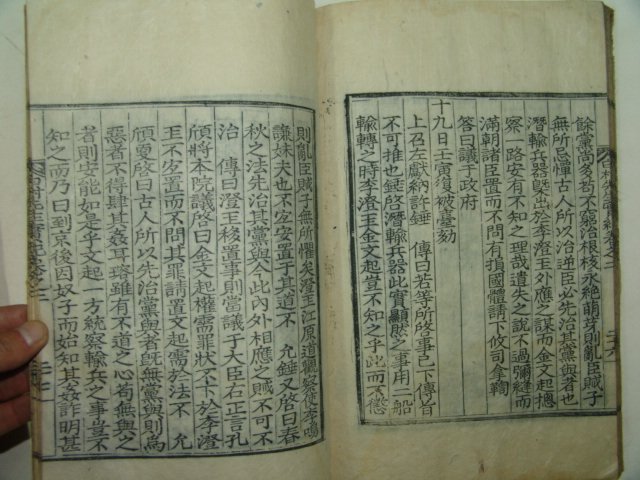 餘黨尚多苟不窮治根核永絶萌芽則亂臣賊子
無所忌憚古人所以治逆臣必先治其黨與者也
潛輸兵器旣出於李澄玉外應之謀而金文起摠
察一路安有不知之理哉遺失之說不過彌縫而
滿朝諸臣置而不問有損國體請下攸司拿鞫
答曰議于政府
十九日壬寅復被臺劾
上召左獻納許錘 傳曰若等所啓事已下傳旨
不可推也錘啓潛輸兵器此實顯然之事用一船
輸轉之時李澄玉金文起豈不知之乎此而不懲
則亂臣賊子無所懼矣澄玉江原道觀察使李鳴
謙妹夫也不宜安置于其道不 允錘又啓曰春
秋之法先治其黨與今此內外相應之賊不可不
治 傳曰澄玉移置事則當議于大臣右正言孔
頎將本院議啓曰金文起權需罪狀不下於李澄
玉不宜置而不問其罪請置文起需於法不 允
頎更啓曰古人所以先治黨與者旣無黨與則爲
惡者不得肆其姦耳瑢雖有不道之心苟無與之
者則安能如是乎文起一方統察輸兵之事豈不
知之而乃曰到京後因奴子而始知其姦詐明甚